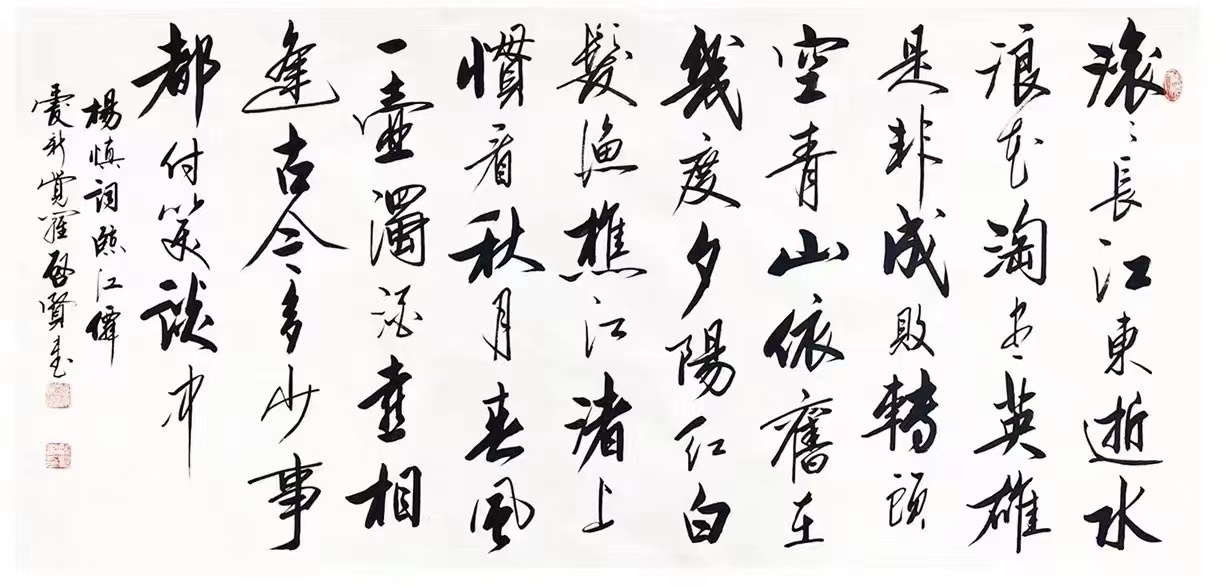 滚〻長江東逝水
浪花淘尽英雄
是非成敗轉頭
空青山依舊在
幾度夕陽紅白
髮漁樵江渚上
慣看秋月春風
一壺濁酒喜相
逢古今多少事
都付笑談中
楊慎詞臨江僊
愛新覺羅啓賢书